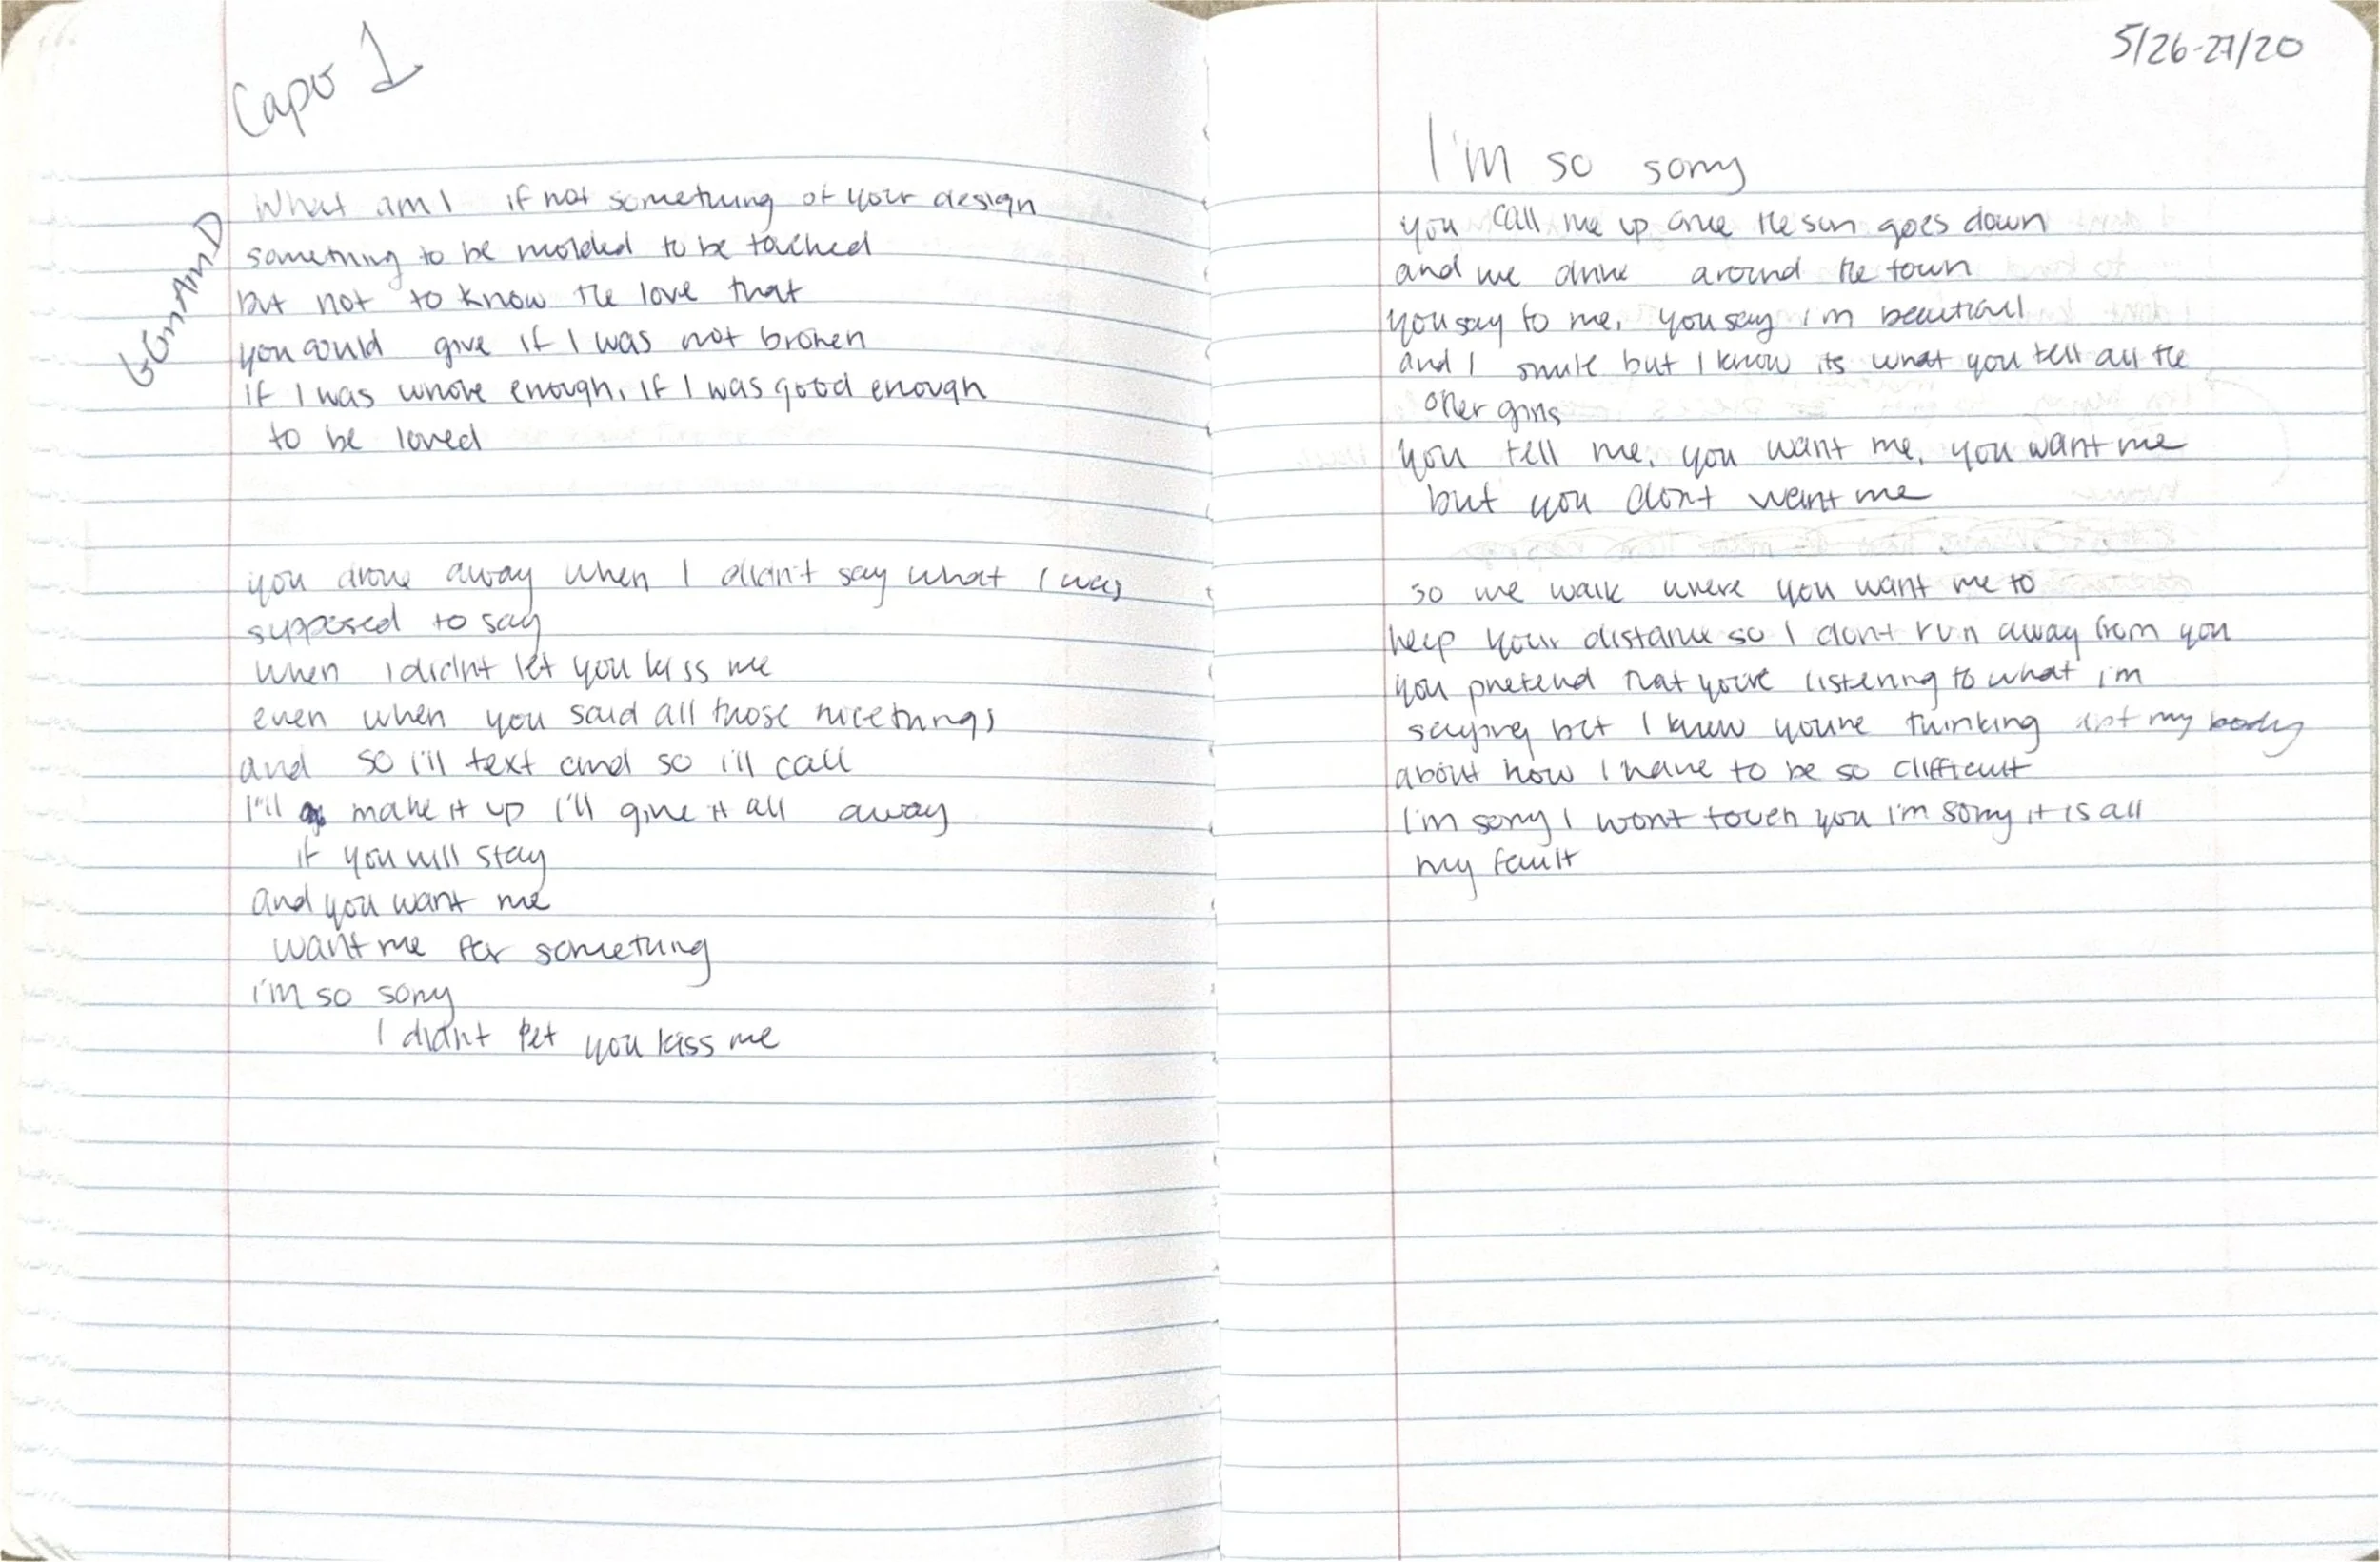 Capo 1
What am I if not something of your design
something to be molded to be touched
but not to know the love that
you could give if I was not broken
if I was whole enough, if I was good enough
to be loved
you drove away when I didn't say what I was
supposed to say
when I didnt let you kiss me
even when you said all those nice things
and so i'll text and so i'll call
I'll make it up I'll give it all away
if you will stay
and you want me
want me for something
i'm so sorry
I didnt let you kiss me
5/26-27/20
I'm so sorry
you call me up once the sun goes down
and we drive around the town
you say to me, you say i'm beautiful
and I smile but I know its what you tell all the
other girls
you tell me, you want me, you want me
but you dont want me
so we walk where you want me to
keep your distance so I dont run away from you
you pretend that you're listening to what i'm
saying but I know you're thinking abt my body
about how I have to be so difficult
I'm sorry I wont touch you i'm sorry it is all
my fault